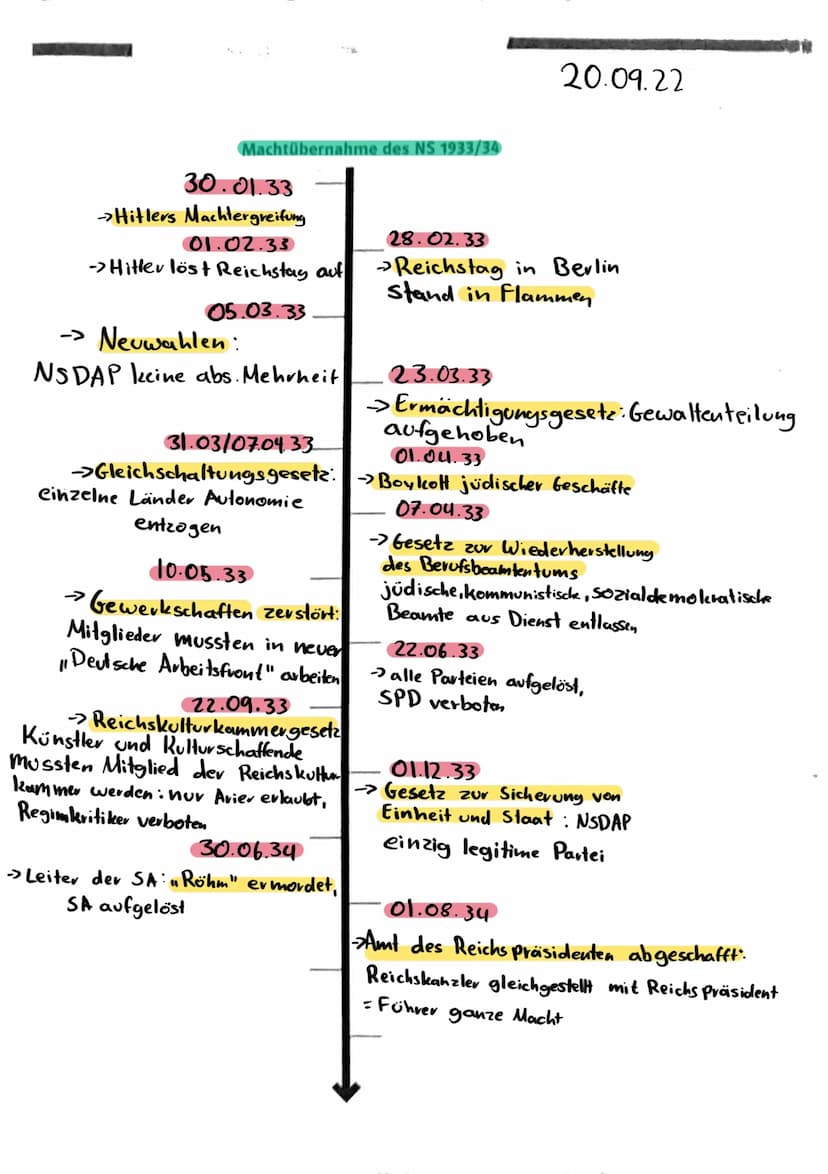 20.09.22
Machtübernahme des NS 1933/34
30.01.33
→Hitlers Machtergreifung
01.02.33
→Hitler löst Reichstag auf
28.02.33
→Reichstag in Berlin
stand in Flammen
05.03.33
→ Neuwahlen:
NSDAP keine abs. Mehrheit
23.03.33
→Ermächtigungsgesetz: Gewaltenteilung
aufgehoben
31.03/07.04.33
→Gleichschaltungsgesetz:
einzelne Länder Autonomie
entzogen
01.04.33
→Boykott jüdischer Geschäfte
07.04.33
→Gesetz zur Wiederherstellung
des Berufsbeamtentums
jüdische, kommunistische, sozialdemokratische
Beamte aus Dienst entlassen
10.05.33
→Gewerkschaften zerstört:
Mitglieder mussten in neuer
„Deutsche Arbeitsfront" arbeiten
22.06.33
→alle Parteien aufgelöst,
SPD verboten
22.09.33
→Reichskulturkammergesetz
Künstler und Kulturschaffende
mussten Mitglied der Reichskultur
kammer werden: nur Arier erlaubt,
Regimkritiker verboten
01.12.33
→ Gesetz zur Sicherung von
Einheit und Staat : NSDAP
einzig legitime Partei
30.06.34
→Leiter der SA: „Röhm" ermordet,
SA aufgelöst
01.08.34
→Amt des Reichspräsidenten abgeschafft:
Reichskanzler gleichgestellt mit Reichspräsident
= Führer ganze Macht